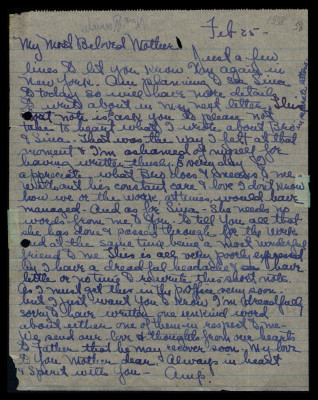 Feb 25 -
My Most Beloved Mother
Just a few
lines to let you know I am again in
New York. Am planning to see Siva
to today so will have more details
to write about in my next letter. This
note is ask you to please not
take to heart what I wrote about Bro
& Siva - That was the way I felt at that
moment & I'm ashamed of myself for
having written thusly. Every day I
appreciate what Bro does & means to me.
Without his constant care & love I don't know
how we or the work
managed - And as for Siva - She needs no
words from me to you to tell you all that
she has done & passed through for the Work
and at the same time being a most wonderful
friend to me. This is all very poorly expressed
I have a dreadful headache & have
little or no time to rewrite this short note.
As I must get this in the post very soon.
but I just want you to know I'm dreadfully
sorry I have written one unkind word
about either one of them in respect to me -
We send our love & thoughts from our hearts
to Father that he may recover soon. My love
to you Mother dear. Always in heart
& Spirit with you -